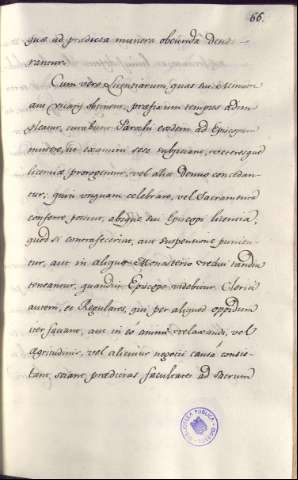 66.
quæ ad prædicta munera obeunda
rentur.
Cum vero Licentiarum, quas sui
aut Vicarij obtinent, præfixum tempus adim-
pleatur, curabunt Parochi eosdem ad Episcopum
mittere, ut examini sese subijciant, veteresque
licentiæ prorogentur, vel aliæ denuo concedan-
tur, quin unquam celebrare, vel Sacramenta
conferre possint, absque sui Episcopi licentia,
quod si contrafecerint, aut suspensione punien-
tur, aut in aliquo Monasterio recludi tandiu
teneantur, quandiu Episcopo videbitur. Clerici
autem, et Regulares, qui per aliquod oppidum
iter faciant, aut in eo animi relaxandi, vel
ægritudinis, vel alicuius negotij causa consis-
tant, sciant, prædictas facultates ad Sacrum
BIBLIOTECA PUBLICA